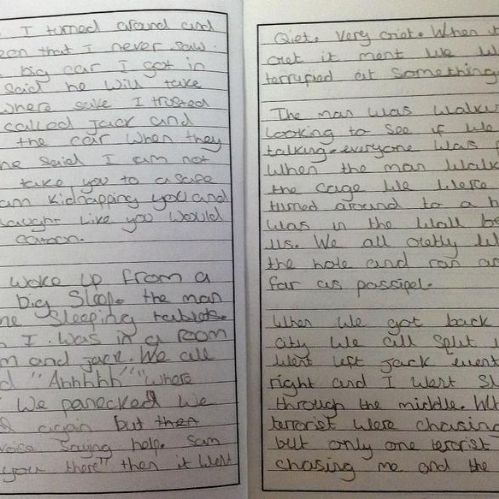 I turned around and
that I never saw.
big car I got in
said he will take
where safe I trusted
called Jack and
the car when they
he said I am not
take you to a safe
am kidnapping you and
laught like you would
cartoon.
woke up from a
big sleep. the man
me sleeping tablets.
I was in a room
and jack. We all
"Ahhhhh" "where
We panecked We
again but then
saying help. Sam
you there" then it went
Qiet. Very Qiet. When it
terrufied at something
The man was walki
looking to see if we
talking. everyone was
When the man walk
the cage we were
turned around to a h
was in the wall b
us. We all qietly
the hole and ran as
far as passipel.
When we got back
city we all split
went left jack went
right and I went st
through the middle. Wh
terorist were chasing
but only one terorist
chasing me and the